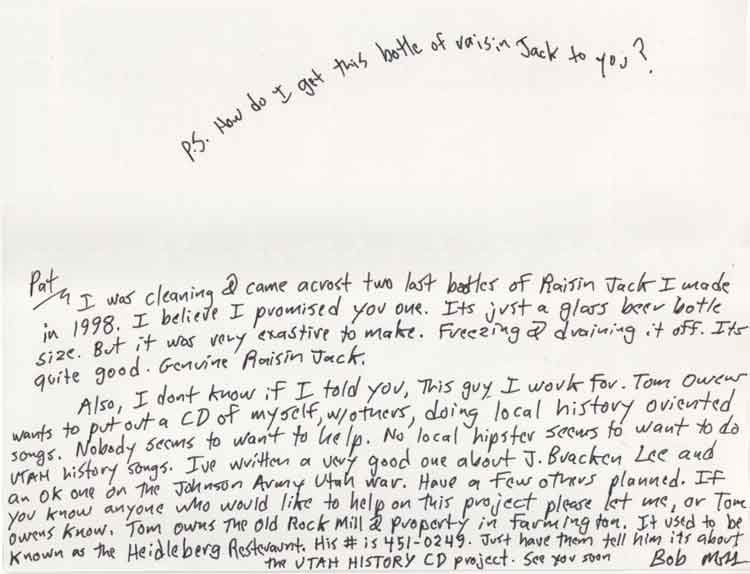 P.S. How do I get this botle of raisin Jack to you?
Pat,
I was cleaning & came acrost two last bottles of Raisin Jack I made
in 1998. I believe I promised you one. Its just a glass beer botle
size. But it was very exastive to make. Freezing & draining it off. Its
quite good. Genuine Raisin Jack.
Also, I dont know if I told you, This guy I work for. Tom Owens
wants to put out a CD of myself, w/others, doing local history oriented
songs. Nobody seems to want to help. No local hipster seems to want to do
UTAH history songs. Ive written a very good one about J. Bracken Lee and
an OK one on the Johnson Army Utah war. Have a few others planned. If
you know anyone who would like to help on this project please let me, or Tom
Owens know. Tom owns the Old Rock Mill & property in Farmington. It used to be
known as the Heidleberg Restevaunt. His # is 451-0249. Just have them tell him its about
the UTAH HISTORY CD project. See you soon Bob